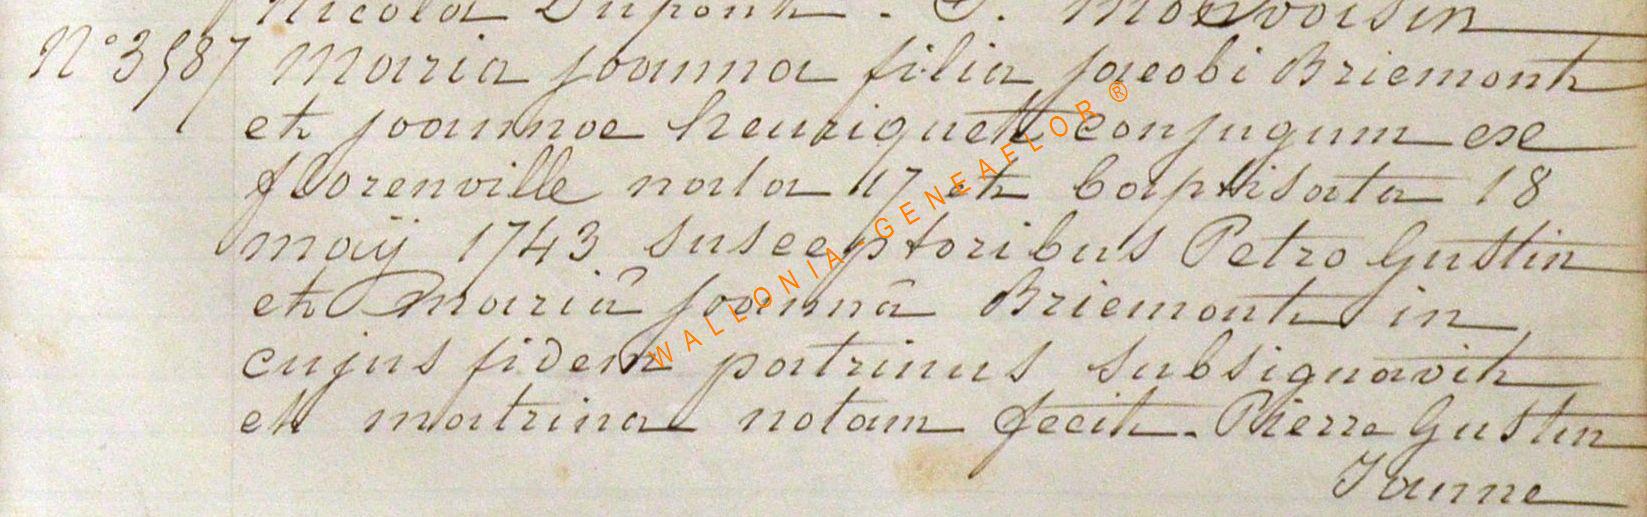 Nicola Dupont. J. Monvoisin
N° 3587 Maria joanna filia jacobi Briemont
et joannae henriquet conjugum ex
florenville nata 17 et baptisata 18
maÿ 1743 susceptoribus Petro Gustin
et mariâ joannâ Briemont in
cujus fidem patrinus subsignavit
et matrina notam fecit. Pierre Gustin
WALLONIA-GENEAFLOR®